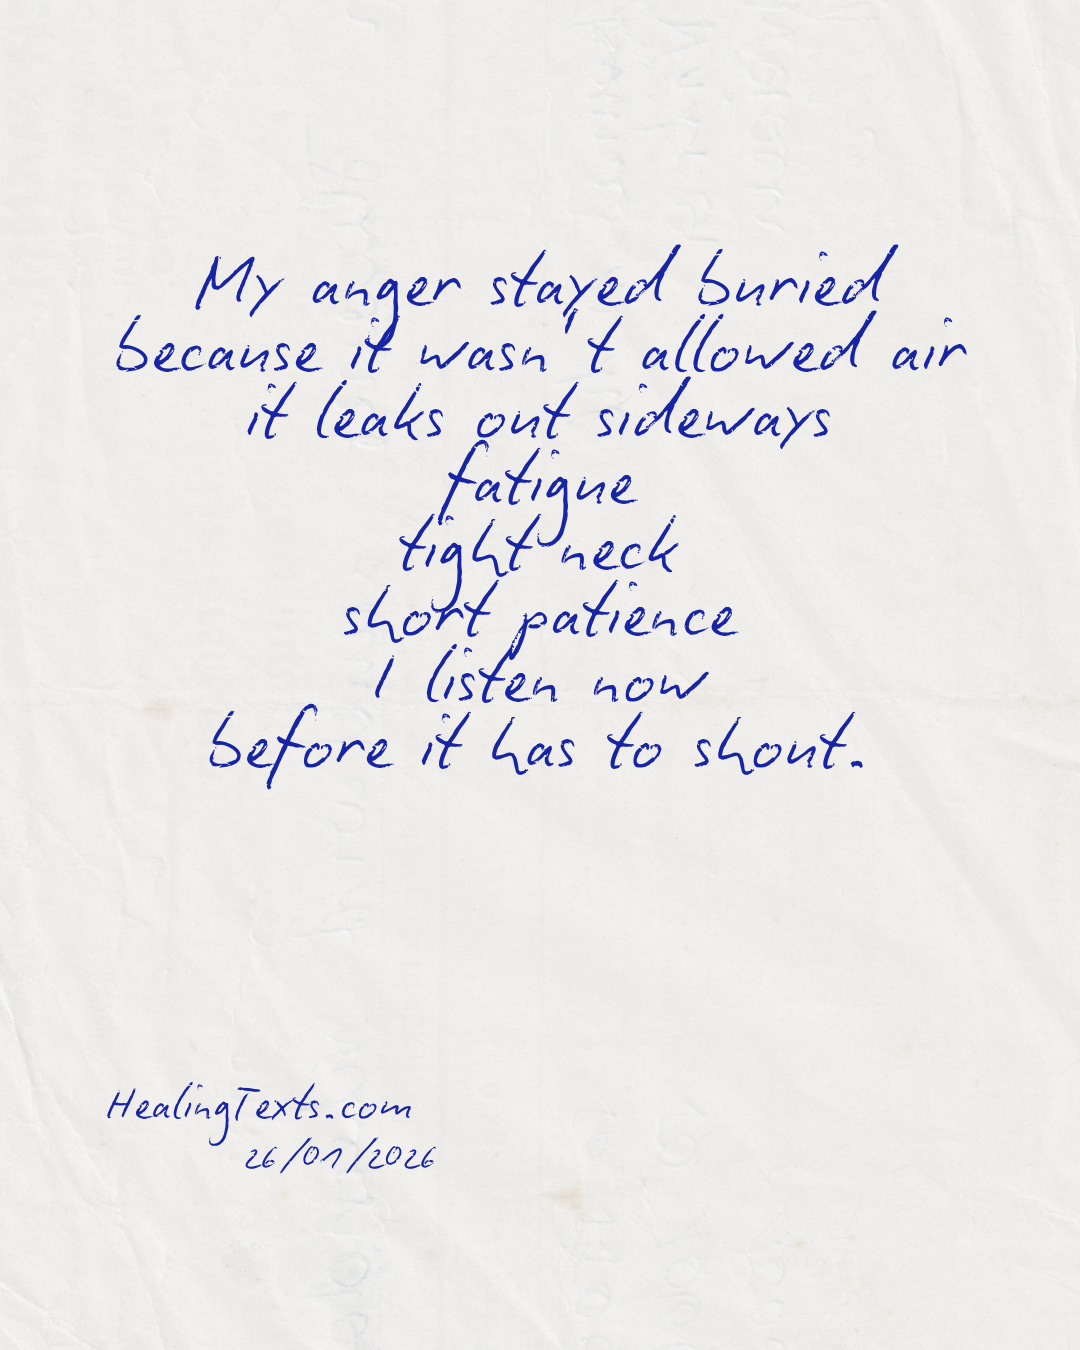 My anger stayed buried
because it wasn't allowed air
it leaks out sideways
fatigue
tight neck
short patience
I listen now
before it has to shout.
HealingTexts.com
26/01/2026